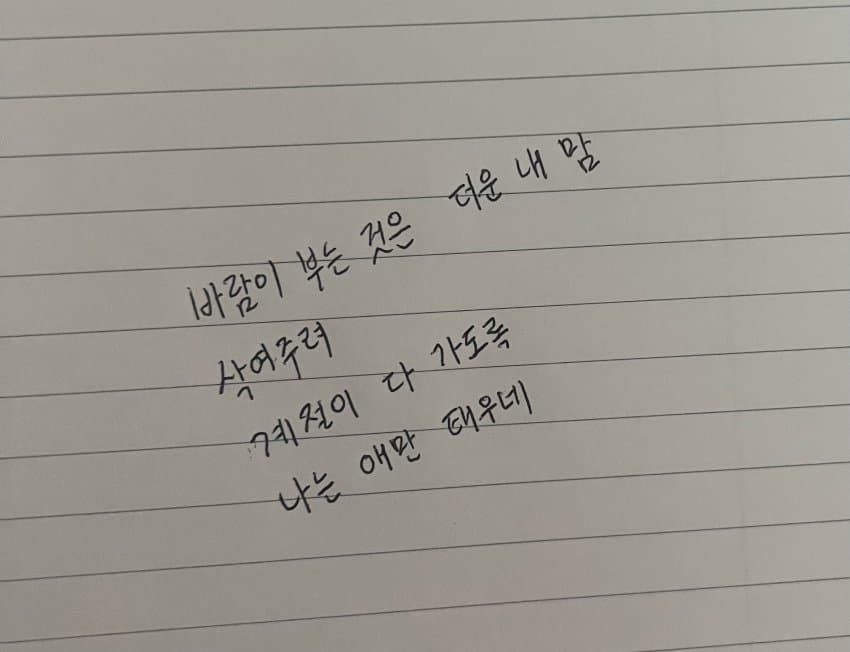 바람이 부는 것은 더운 내 맘
삭여주려
계절이 다 가도록
나는 애만 태우네